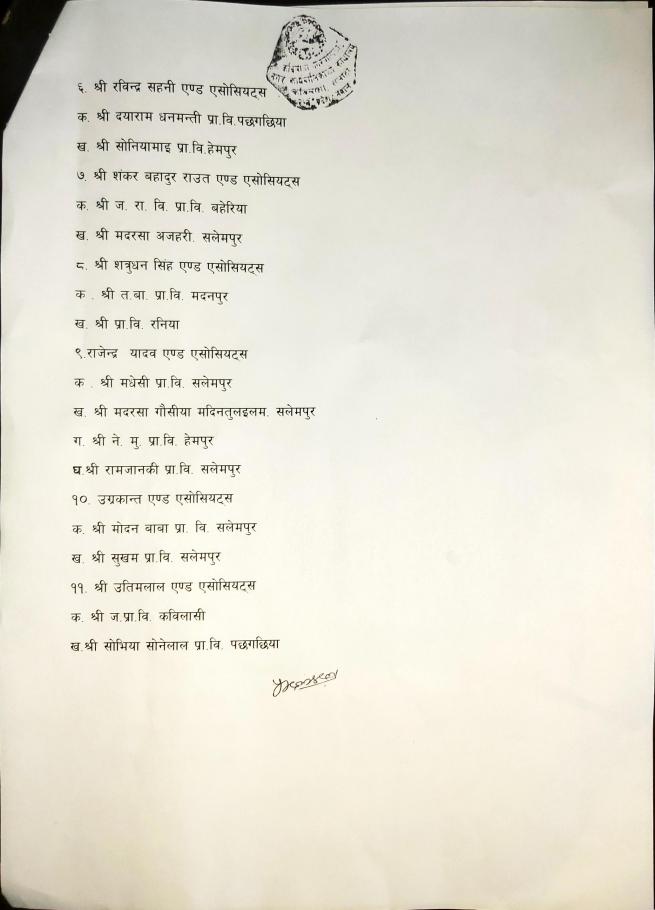 ६. श्री रविन्द्र सहनी एण्ड एसोसियट्स
क. श्री दयाराम धनमन्ती प्रा.वि.पछगछिया
ख. श्री सोनियामाइ प्रा.वि.हेमपुर
७. श्री शंकर बहादुर राउत एण्ड एसोसियट्स
क. श्री ज. रा. वि. प्रा.वि. बहेरिया
ख. श्री मदरसा अजहरी. सलेमपुर
८. श्री शत्रुधन सिंह एण्ड एसोसियट्स
क . श्री त.बा. प्रा.वि. मदनपुर
ख. श्री प्रा.वि. रनिया
९.राजेन्द्र यादव एण्ड एसोसियट्स
क . श्री मधेसी प्रा.वि. सलेमपुर
ख. श्री मदरसा गौसीया मदिनतुलइलम. सलेमपुर
ग. श्री ने. मु. प्रा.वि. हेमपुर
घ.श्री रामजानकी प्रा.वि. सलेमपुर
१०. उग्रकान्त एण्ड एसोसियट्स
क. श्री मोदन बाबा प्रा. वि. सलेमपुर
ख. श्री सुखम प्रा.वि. सलेमपुर
११. श्री उतिमलाल एण्ड एसोसियट्स
क. श्री ज.प्रा.वि. कविलासी
ख.श्री सोभिया सोनेलाल प्रा.वि. पछगछिया